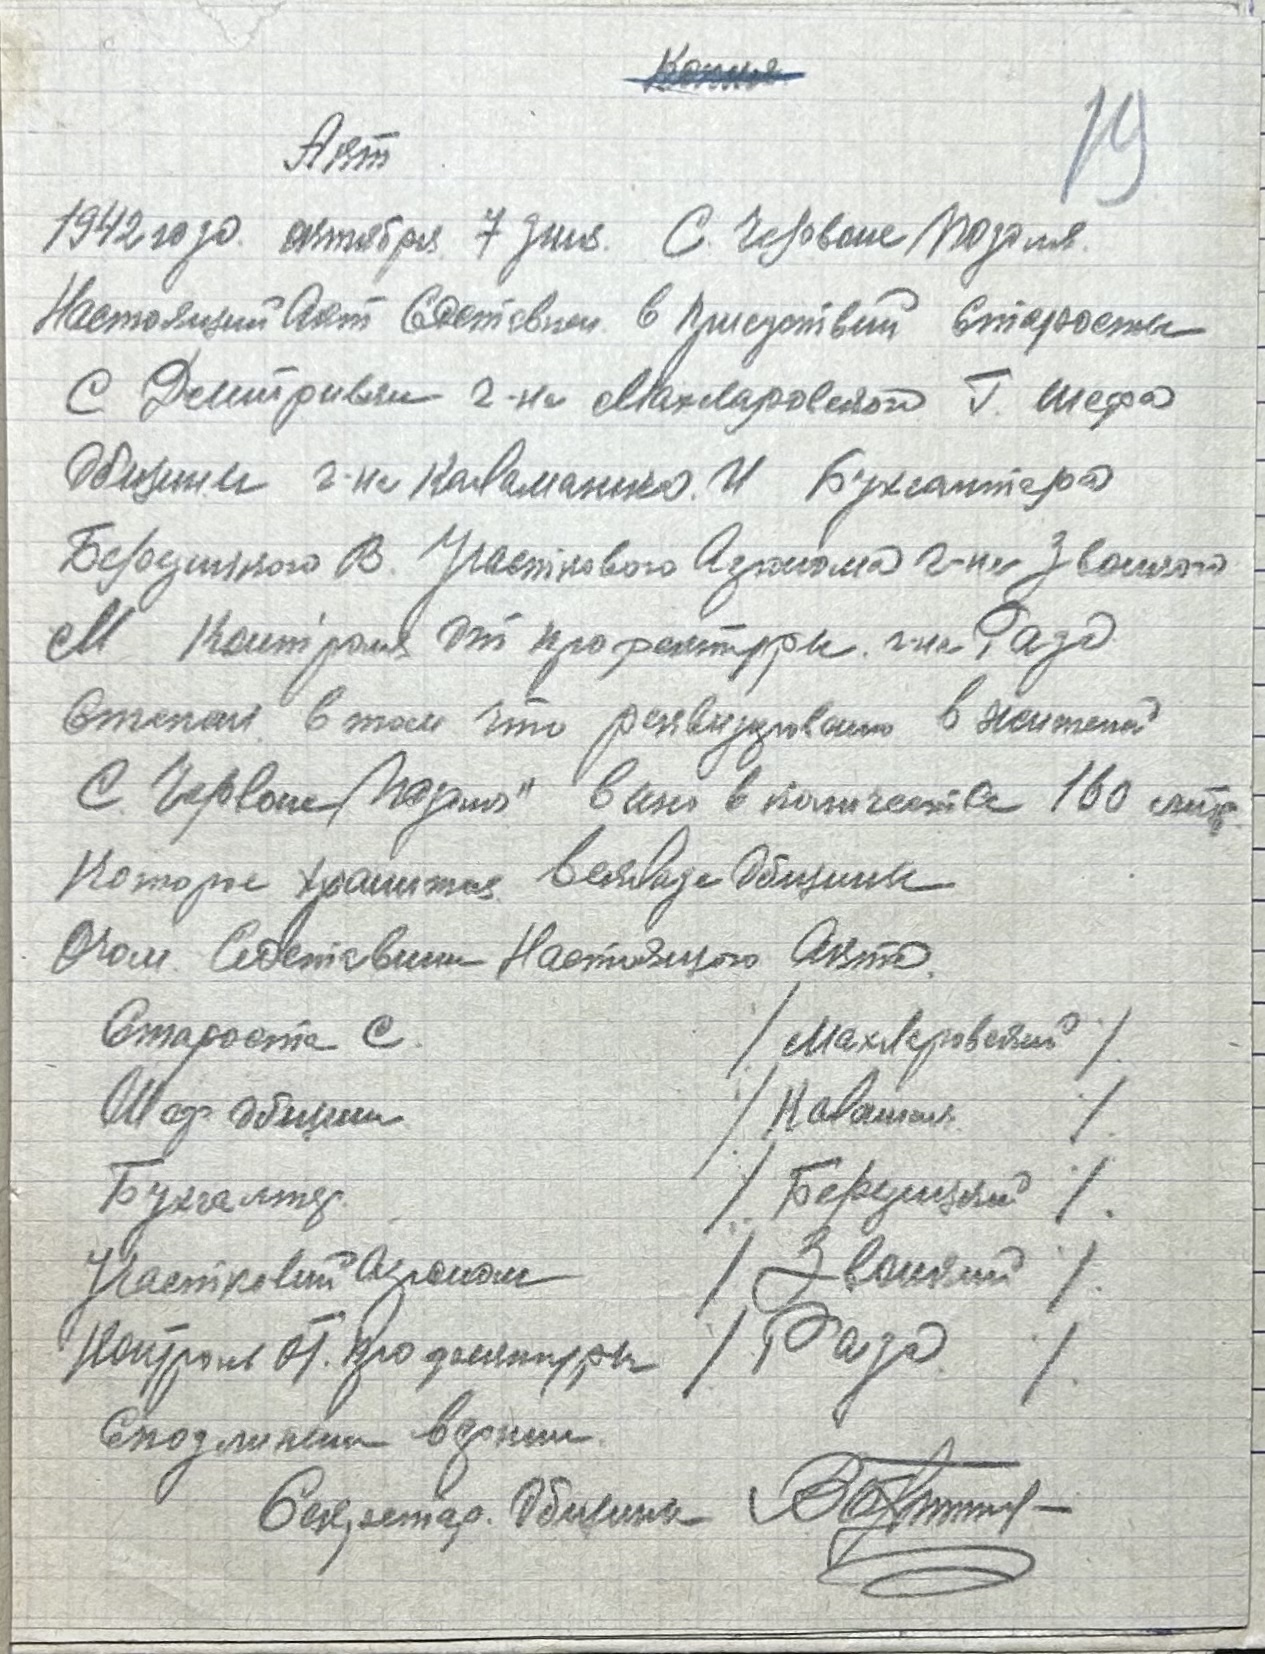 Копия
19
Акт
1942 года октября 7 дня С. Червоне Подоля
Настоящий Акт Составлен в присуствии старосты
С Дмитривки г-на Махларовской Г. шефа
Общины г-на И Бухгалтера
Бердицкого В. Участкового Агронома г-на Звонкого
М Контроля От профектуры г-на Газа
Степан в том что ревизировано в жителей
С. Червоне Подоля" вина в количестве 160 литр.
Которое хранится в складе Общины
О чом Составлен Настоящого Акта.
Староста С. / Махларовский /.
Шеф общини /
Бухгалтер /. Бердицкий /.
Участковий Агроном / Звонкий /.
Контроль От. профектуры /. Газа /.
С подлиником верно.
Секретар. Общины